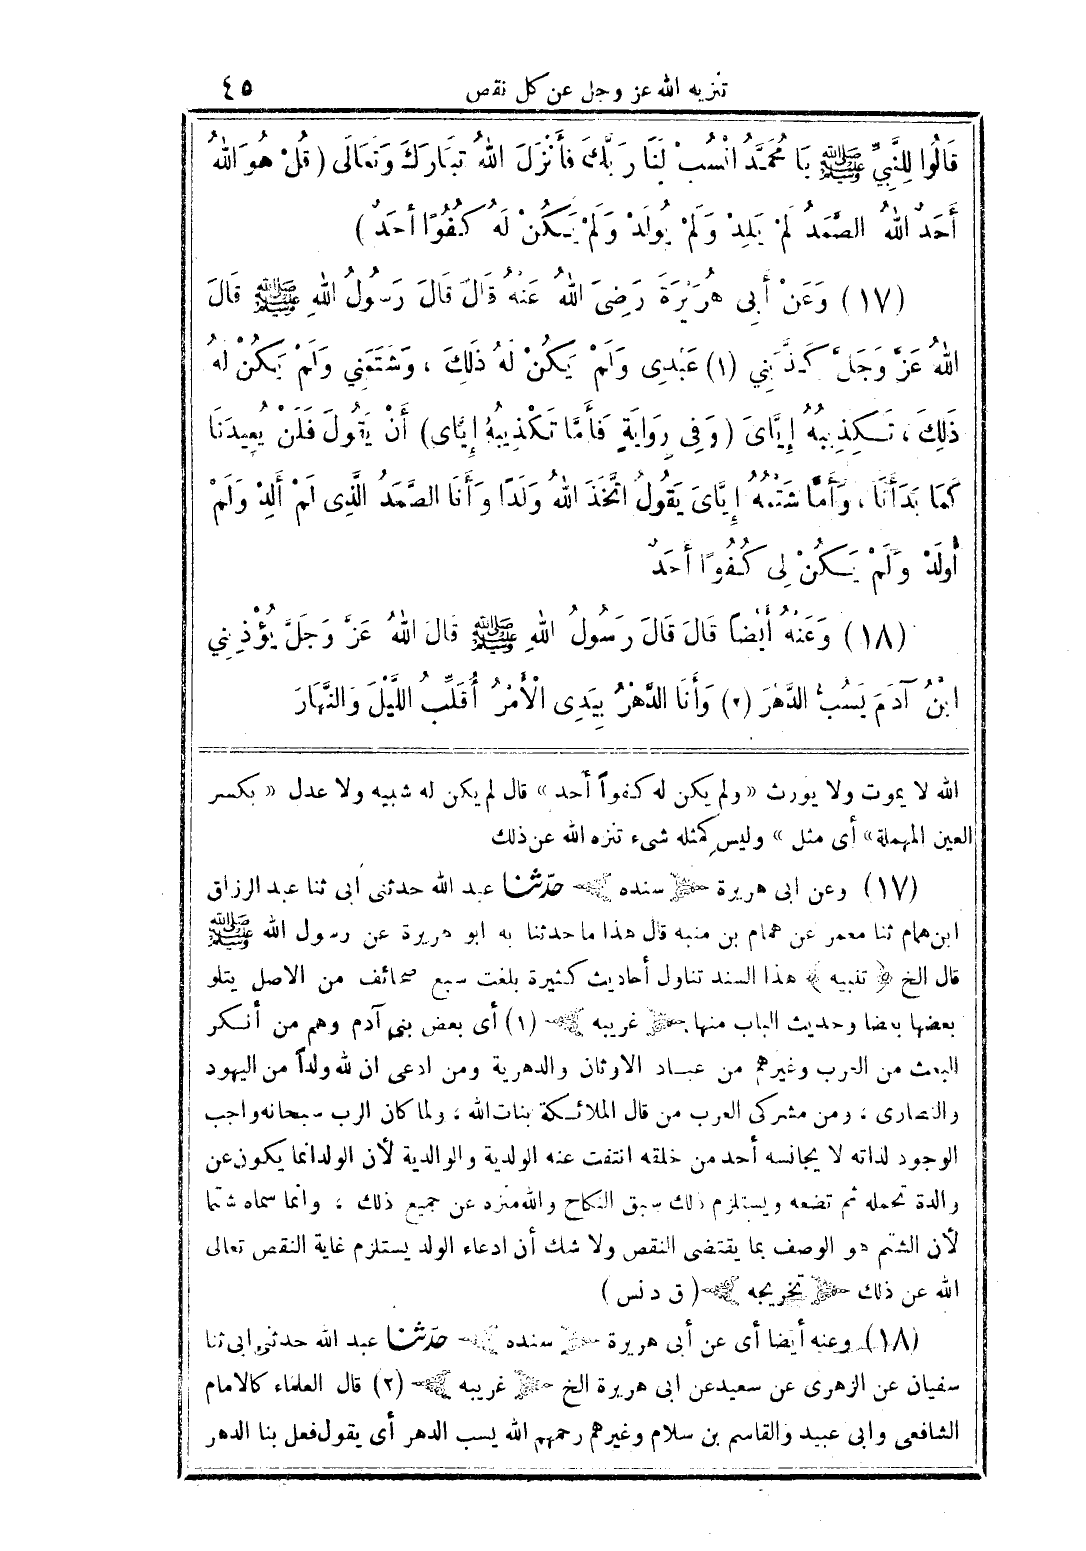 تنزيه الله عز وجل عن كل نقص ٤٥
قَالُوا لِلنَّبِيِّ ﷺ يَا مُحَمَّدُ انْسُبْ لَنَا رَبَّكَ فَأَنْزَلَ اللهُ تَبَارَكَ وَتَعَالَى (قُلْ هُوَ اللهُ
أَحَدٌ اللهُ الصَّمَدُ لَمْ يَلِدْ وَلَمْ يُولَدْ وَلَمْ يَكُنْ لَهُ كُفُوًا أَحَدٌ)
(١٧) وَعَنْ أَبِي هُرَيْرَةَ رَضِيَ اللهُ عَنْهُ قَالَ قَالَ رَسُولُ اللهِ ﷺ قَالَ
اللهُ عَزَّ وَجَلَّ كَذَّبَنِي (١) عَبْدِى وَلَمْ يَكُنْ لَهُ ذَلِكَ ، وَشَتَمَنِي وَلَمْ يَكُنْ لَهُ
ذَلِكَ ، تَكْذِيبُهُ إِيَّاىَ (وَفِي رِوَايَةٍ فَأَمَّا تَكْذِيبُهُ إِيَّاى) أَنْ يَقُولَ فَلَنْ يُعِيدَنَا
كَمَا بَدَأَنَا ، وَأَمَّا شَتْمُهُ إِيَّاىَ يَقُولُ اتَّخَذَ اللهُ وَلَدًا وَأَنَا الصَّمَدُ الَّذِى لَمْ أَلِدْ وَلَمْ
أُولَدْ وَلَمْ يَكُنْ لِى كُفُوًا أَحَدٌ
(١٨) وَعَنْهُ أَيْضًا قَالَ قَالَ رَسُولُ اللهِ ﷺ قَالَ اللهُ عَزَّ وَجَلَّ يُؤْذِينِي
ابْنُ آدَمَ يَسُبُّ الدَّهْرَ (٢) وَأَنَا الدَّهْرُ بِيَدِى الْأَمْرُ أُقَلِّبُ اللَّيْلَ وَالنَّهَارَ
الله لا يموت ولا يورث «ولم يكن له كفواً أحد» قال لم يكن له شبيه ولا عدل «بكسر
العين المهملة» أى مثل» وليس كمثله شىء تنزه الله عن ذلك
(١٧) وعن ابى هريرة ﴿سنده﴾ حدّثنا عبد الله حدثنى أبى ثنا عبد الرزاق
ابن همام ثنا معمر عن همام بن منبه قال هذا ما حدثنا به ابو هريرة عن رسول الله ﷺ
قال الخ ﴿تنبيه﴾ هذا السند تناول أحاديث كثيرة بلغت سبع صحائف من الاصل يتلو
بعضها بعضا وحديث الباب منها ﴿غريبه﴾ (١) أى بعض بنى آدم وهم من أنكر
البعث من العرب وغيرهم من عباد الاوثان والدهرية ومن ادعى ان لله ولداً من اليهود
والنصارى ، ومن مشركى العرب من قال الملائكة بنات الله ، ولما كان الرب سبحانه واجب
الوجود لذاته لا يجانسه أحد من خلقه انتفت عنه الولدية والوالدية لأن الولد انما يكون عن
والدة تحمله ثم تضعه ويستلزم ذلك سبق النكاح والله منزه عن جميع ذلك ، وانما سماه شتما
لأن الشتم هو الوصف بما يقتضى النقص ولا شك أن ادعاء الولد يستلزم غاية النقص تعالى
الله عن ذلك ﴿تخريجه﴾ (ق د نس)
(١٨) وعنه أيضا أى عن أبى هريرة ﴿سنده﴾ حدّثنا عبد الله حدثنى ابى ثنا
سفيان عن الزهرى عن سعيد عن ابى هريرة الخ ﴿غريبه﴾ (٢) قال العلماء كالامام
الشافعى وابى عبيد والقاسم بن سلام وغيرهم رحمهم الله يسب الدهر أى يقول فعل بنا الدهر